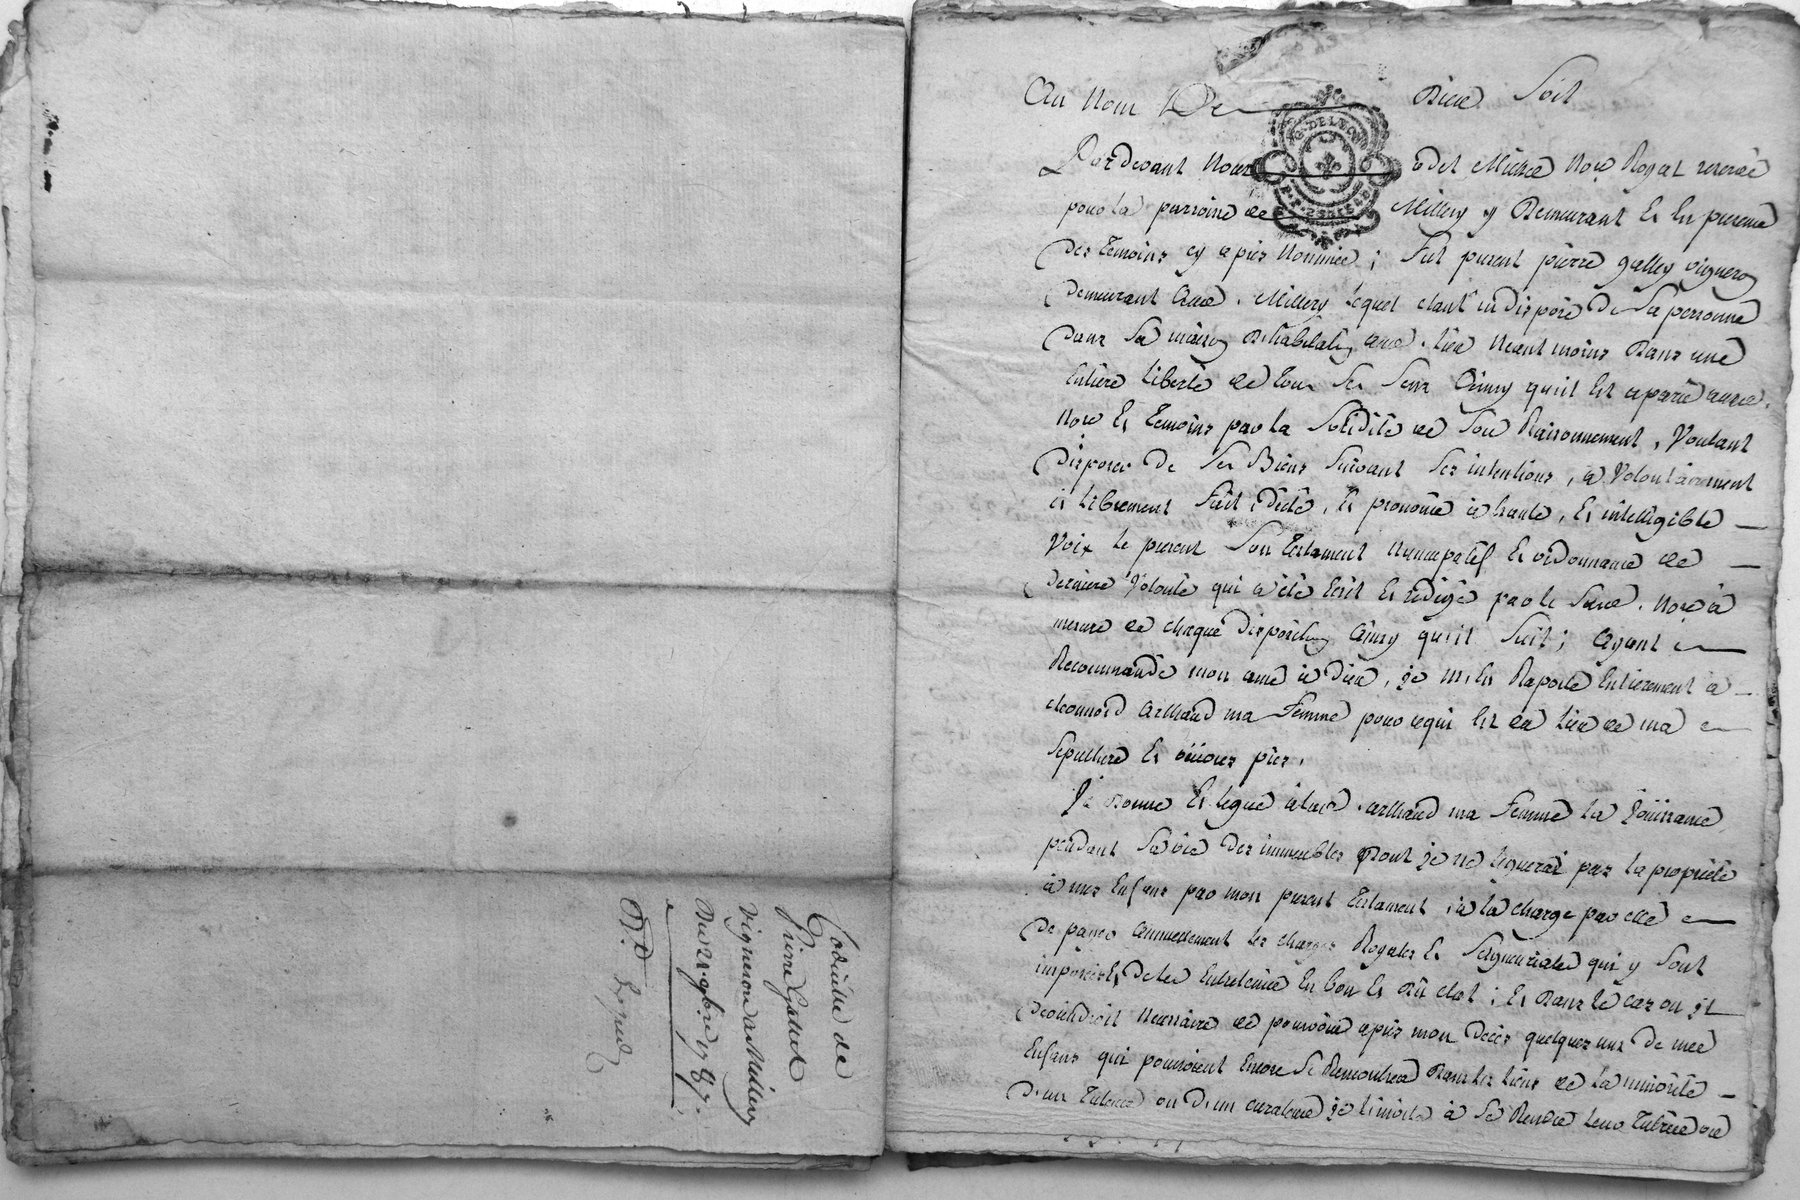 Codicille de
Pierre Galliet
Vigneron a Millery
Du 21. 9bre 1787.
Au Nom De Dieu Soit
G. DE LYON
Pardevant Nous Notre Royal reservé
pour la parroisse de Millery y Demeurant Et En presence
des temoins cy apres Nommés ; fut present pierre galley vigneron
demeurant aud. Millery lequel etant indisposé De Sa personne
dans Sa maison D'habitation aud. lieu Neantmoins Dans une
Entiere liberté de tous Ses Sens Ainsy qu'il Est aparu aud.
Nore Et temoins par la Solidité de Son Raisonnement, Voulant
disposer De Ses Biens suivant Ses intentions, a Volontairement
et librement fait dicté, Et prononcé a haute, Et intelligible
Voix le present Son testament nuncupatif Et ordonnance de
derniere Volonté qui a été Ecrit Et redigé par le Soussé. Nore à
mesure de chaque disposition Ainsy qu'il Suit ; Ayant
Recommandé mon ame à Dieu, je m'En Raporte Entierement à
cleonord arthaud ma femme pour ce qui Est du lieu de ma
Sepulture Et œuvres pies.
Je Donne Et legue à lad. arthaud ma femme la Jouissance
pendant Sa vie Des immeubles Dont je ne leguerai pas la proprieté
à mes Enfans par mon present testament, à la charge par elle
De payer Annuellement les charges Royales Et Seigneuriales qui y Sont
imposées Et de les Entretenir En bon Et Du etat ; Et Dans le cas ou il
deviendroit Necessaire de pourvoir après mon Decès quelques uns De mes
Enfans qui pourroient Encore Se Rencontrer Dans les liens de la minorité
D'un tuteur ou D'un curateur je l'invite à Se Rendre leur tutrice ou